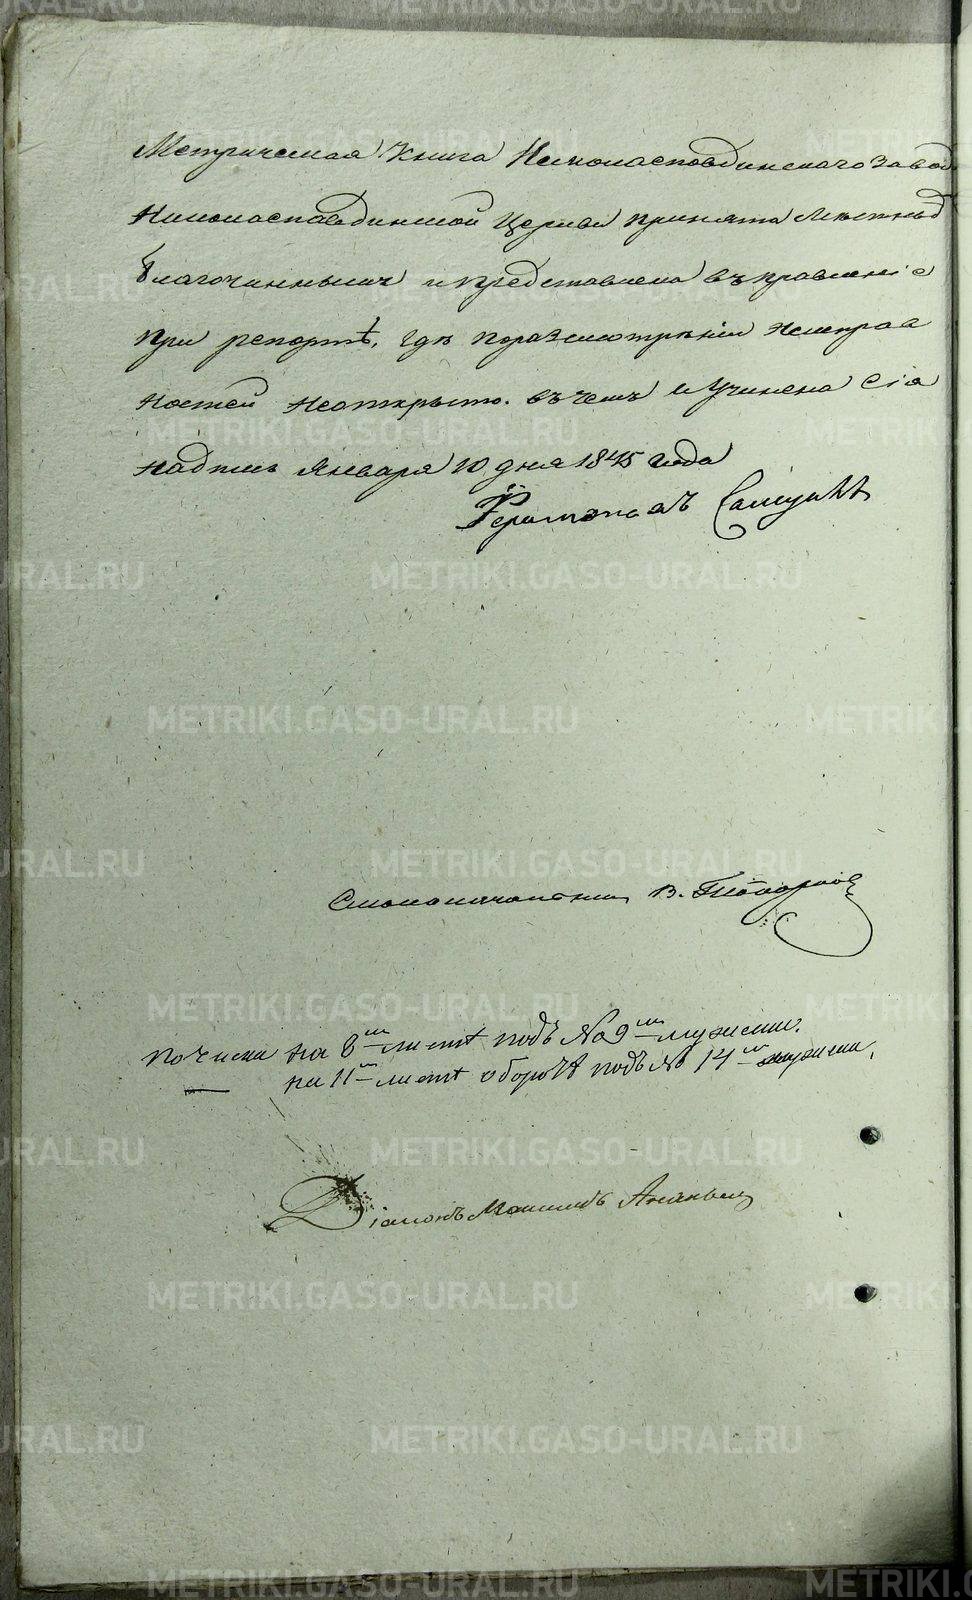 Метрическая Книга Николаепавдинскаго завод
Николаепавдинской Церкви принята мѣстныъ
благочиннымъ и представлена въ правленіе
при репортѣ, гдѣ поразсмотрѣніи неисправ
ностей неоткрыто. въ чемъ и учинена сія
надпись Января 10 дня 1845 года
Іеромонахъ Самуилъ
Столоначальникъ В.
почистки на 8м листѣ подъ № 9м мужеска.
на 11м листѣ оборотѣ подъ № 14м мужеска,
Діаконъ Ананьинъ
METRIKI.GASO-URAL.RU